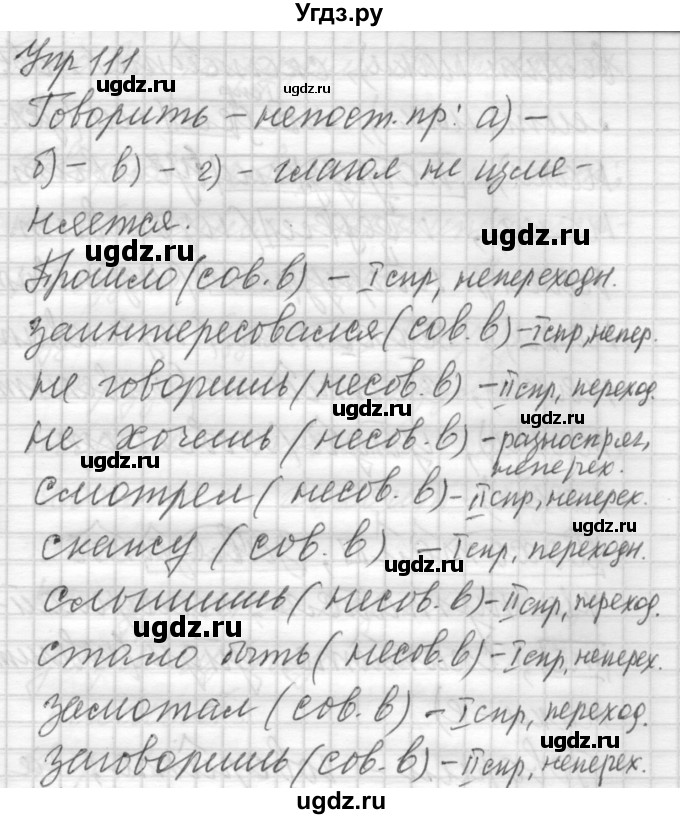 Угдз.ру
Упр 111
ugdz.ru
Говорить – непост. пр: а) –
ugdz.ru
б) – в) – г) – глагол не изме-
няется.
ugdz.ru
ugdz.ru
Прошло (сов. в) – I спр, непереходн.
заинтересовался (сов. в) – I спр, непер.
не говоришь (несов. в) – II спр, переход.
ugdz.ru
ugdz.ru
не хочешь (несов. в) – разноспряг,
неперех.
ugdz.ru
смотрел (несов. в) – II спр, неперех.
ugdz.ru
скажу (сов. в) – I спр, переходн.
ugdz.ru
слышишь (несов. в) – II спр, переход.
ugdz.ru
стало быть (несов. в) – I спр, неперех.
замотал (сов. в) – I спр, переход.
ugdz.ru
заговоришь (сов. в) – II спр, неперех.
ugdz.ru